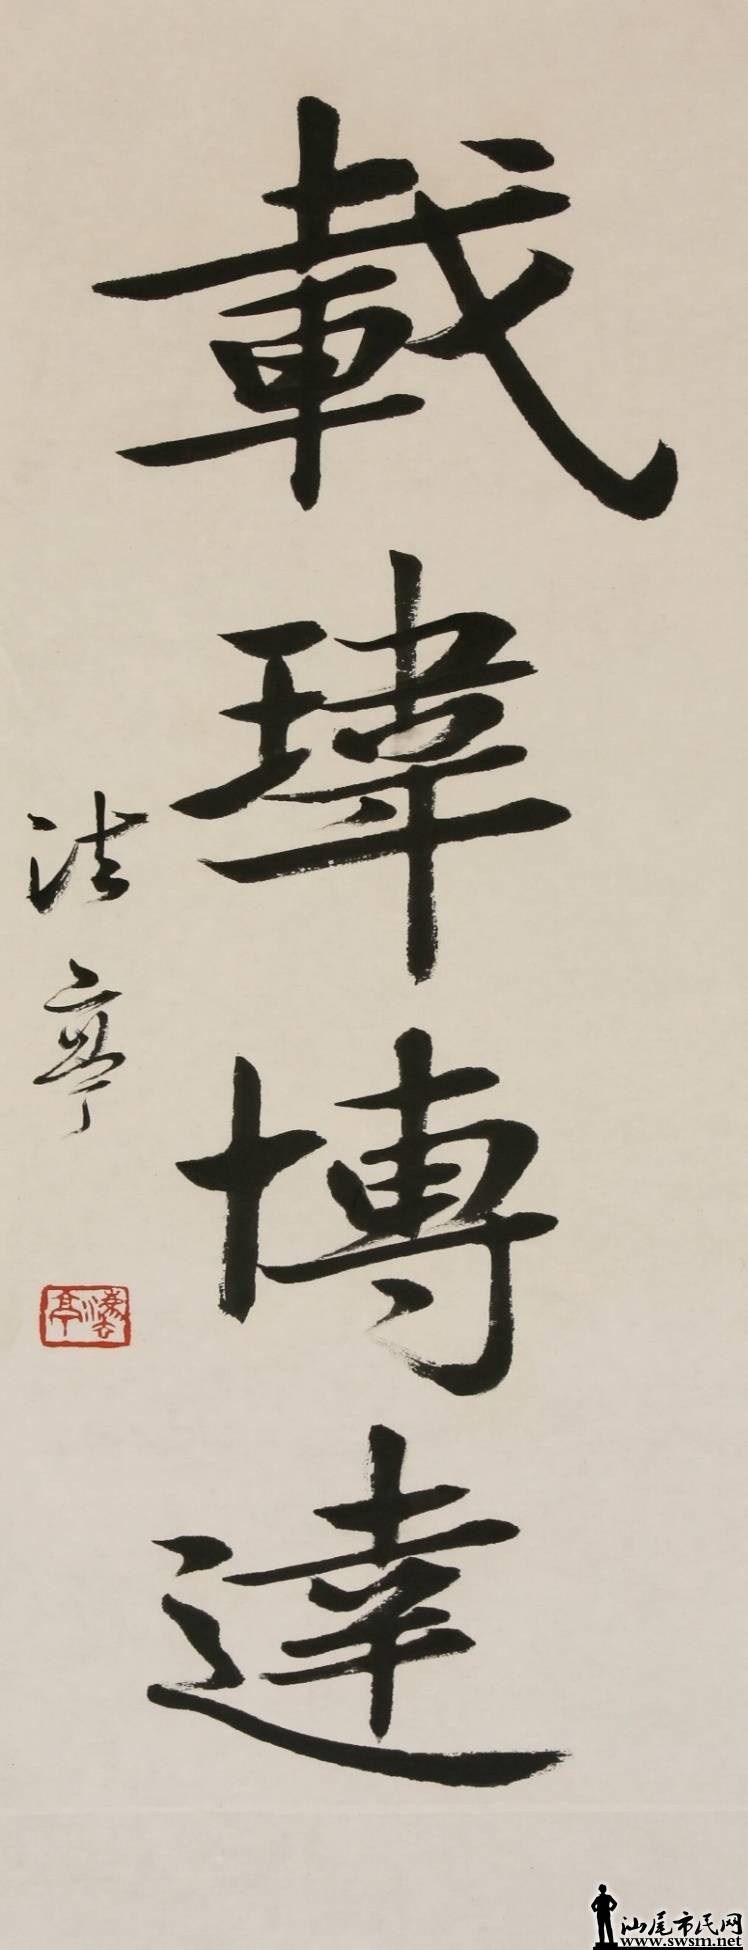 載瑋博達
法亭
灋亭
汕尾市民网
www.swsm.net